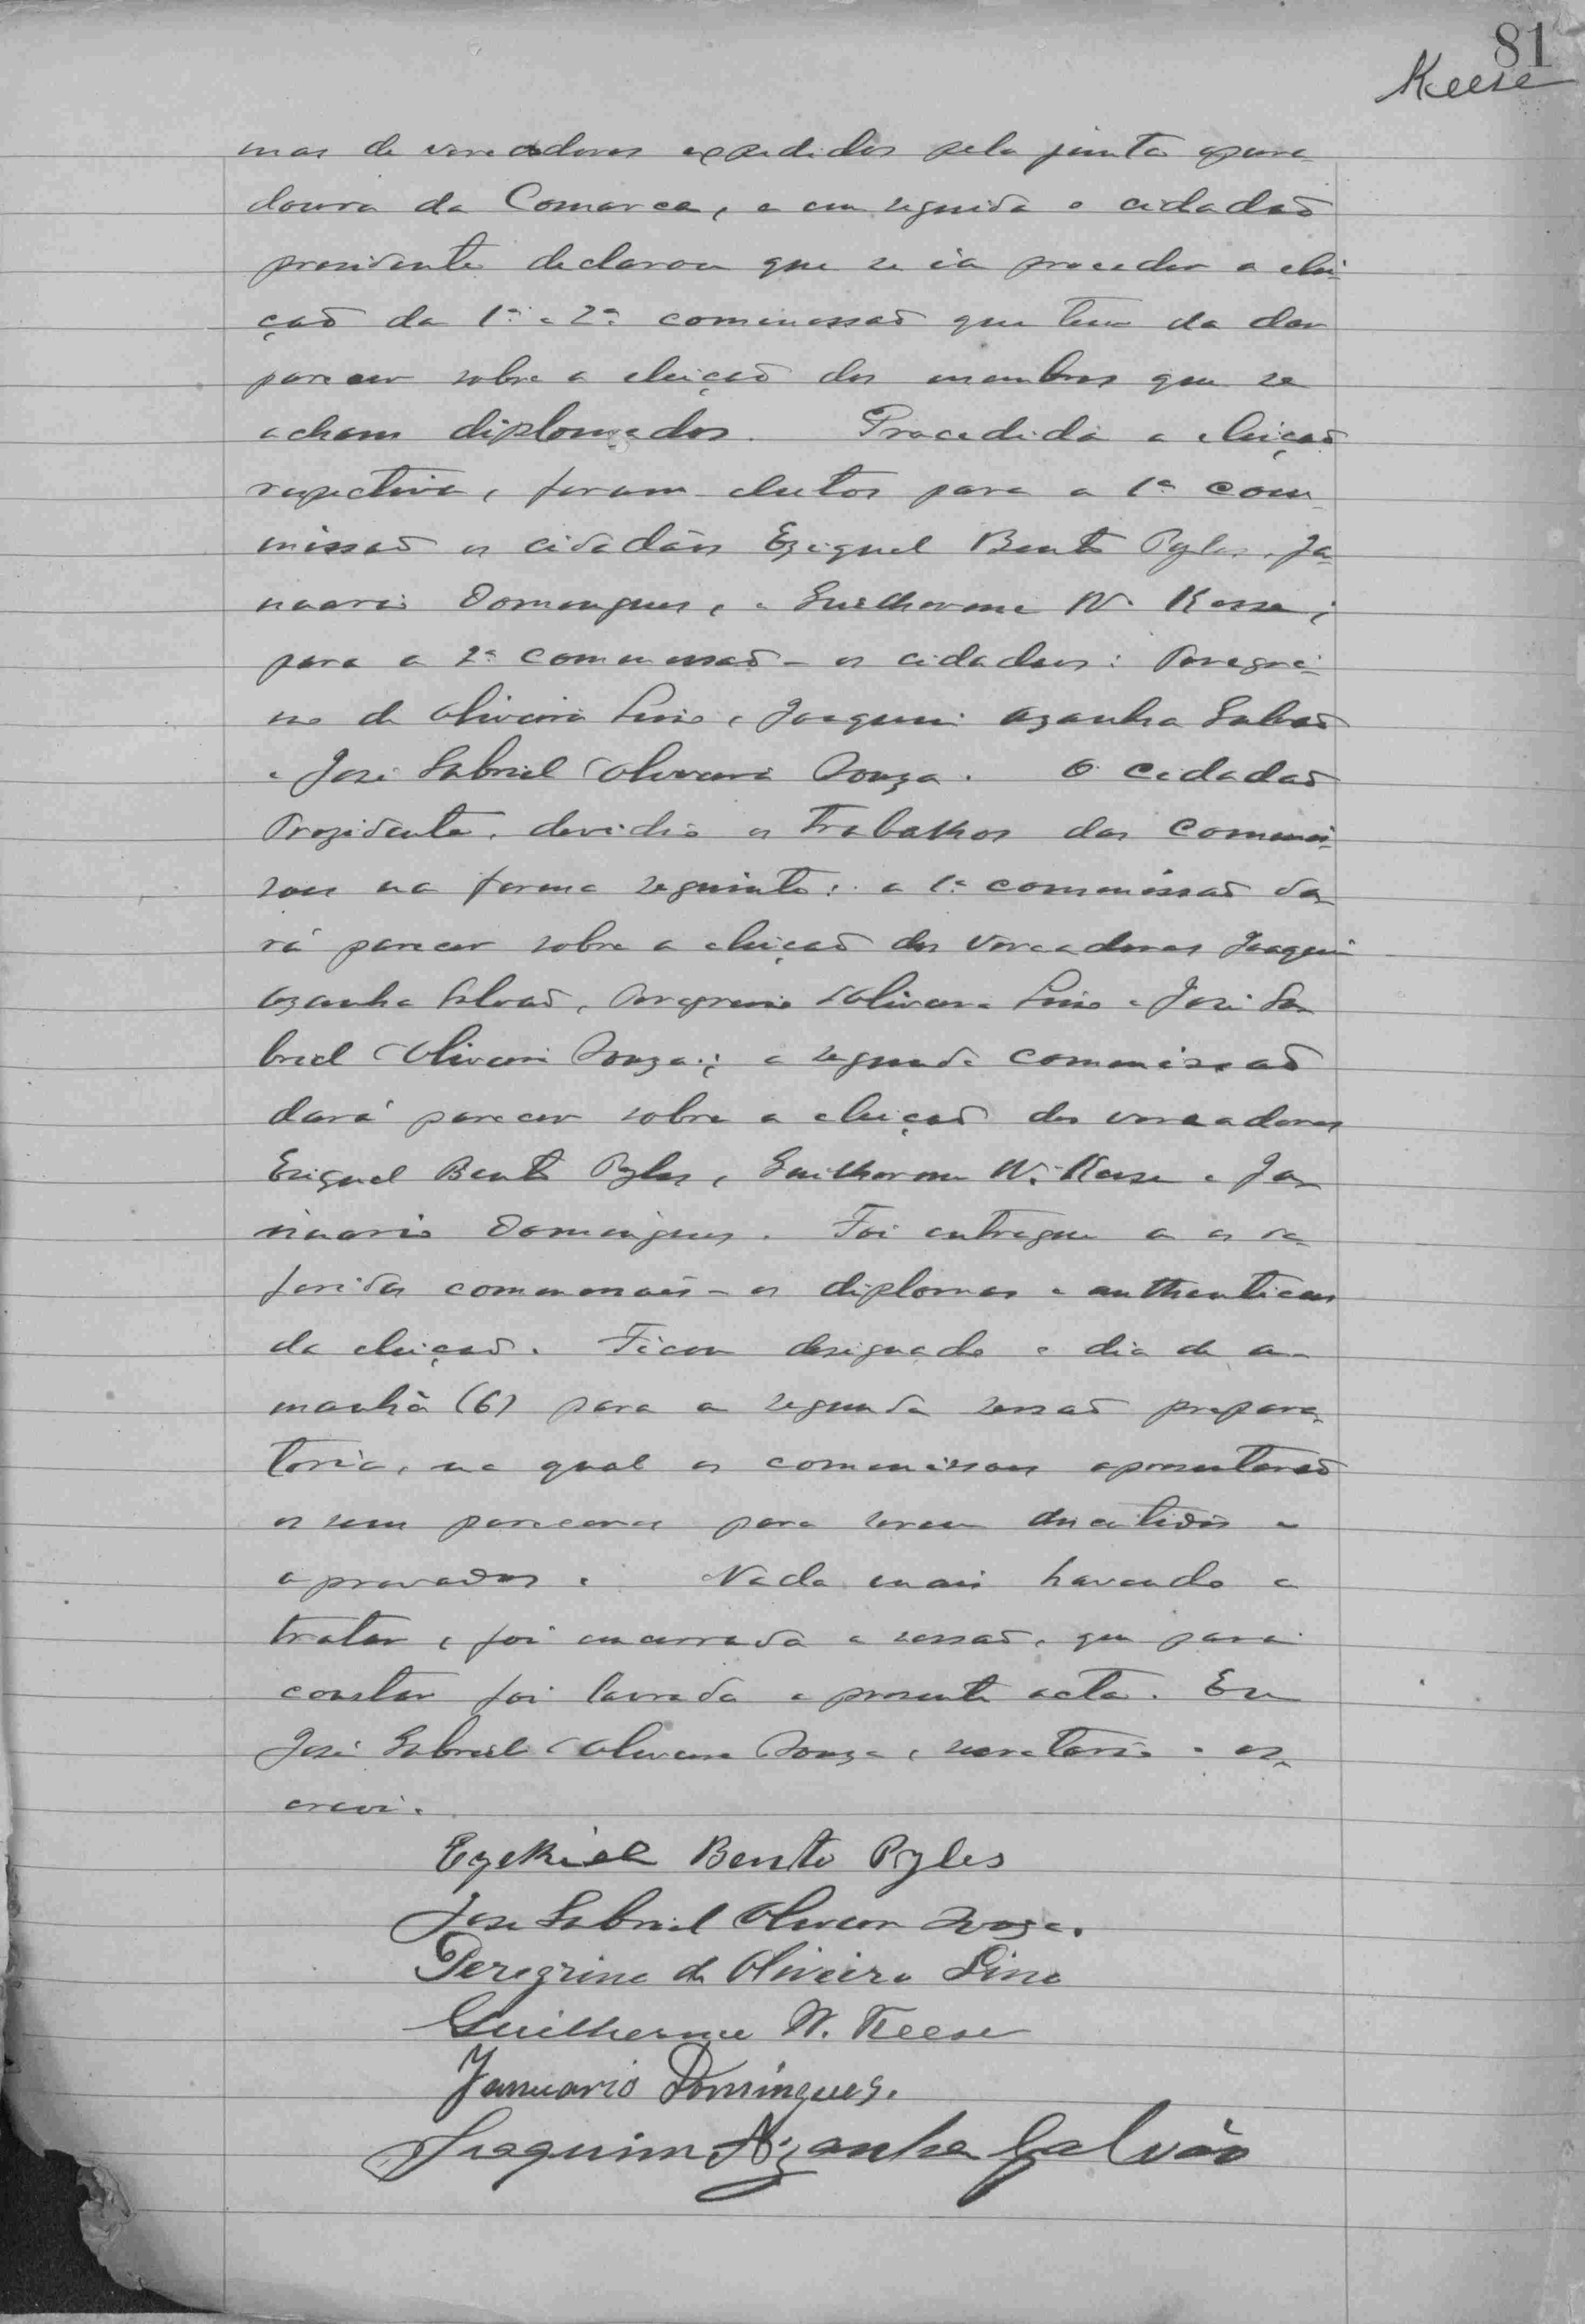 81
Keese
mas de vereadores expedidos pela junta apura-
doura da Comarca, e em seguida o cidadaõ
presidente declarou que se ia proceder a elei-
çaõ da 1ª e 2ª commissaõ que tem de dar
parecer sobre a eleiçaõ dos membros que se
acham diplomados. Procedida a eleiçaõ
respectiva, foram eleitos para a 1ª com-
missaõ os cidadãos Eziquel Bento Pyles, Ja-
nuario Domingues, e Guilherme W. Keese;
para a 2ª commissaõ - os cidadaos: Peregri-
no de Oliveira Lino, Joaquim Azanha Galvaõ
e José Gabriel Oliveira Souza. O cidadaõ
Prezidente devidio os trabalhos das commis-
soes na forma seguinte: a 1ª commissaõ da-
rá parecer sobre a eleiçaõ dos vereadores Joaquim
Azanha Galvaõ, Peregrino Oliveira Lino e José Ga-
briel Oliveira Souza; a segunda commissaõ
dará parecer sobre a eleiçaõ dos vereadores
Eziquel Bento Pyles, Guilherme W. Keese e Ja-
nuario Domingues. Foi entregue a as re-
feridas commissoes - os diplomas e authenticas
da eleiçaõ. Ficou designado o dia de a-
manhã (6) para a segunda sessaõ prepara-
toria, na qual as commissoes apresentaraõ
os seus pareceres para serem discutidos e
aprovados. Nada mais havendo a
tratar, foi encerrada a sessaõ, que para
constar foi lavrada a presente acta. Eu
José Gabriel Oliveira Souza, secretario o es-
crevi.
Ezekiel Bento Pyles
José Gabriel Oliveira Souza.
Peregrino de Oliveira Lino
Guilherme W. Keese
Januario Domingues.
Joaquim Azanha Galvão